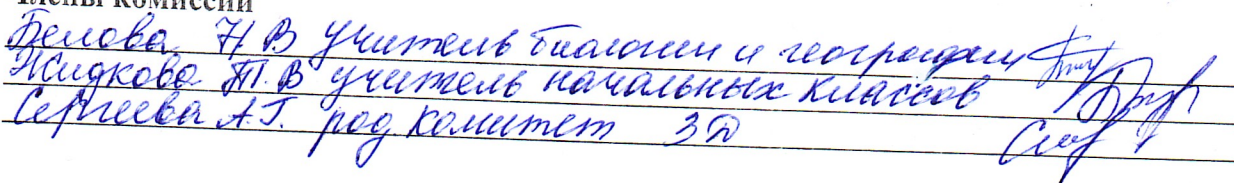 Члены комиссии
Белова Н В учитель биологии и географии
Жидкова Т. В учитель начальных классов
Сергеева А.Г. род комитет 3Д